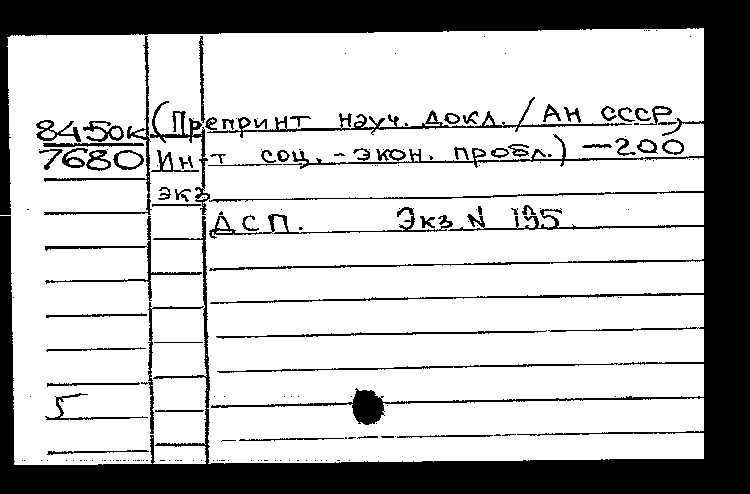 8450к (Препринт науч. докл. / АН СССР,
7680 Ин-т соц.-экон. пробл.) — 200
экз
ДСП. Экз. N 195.
5